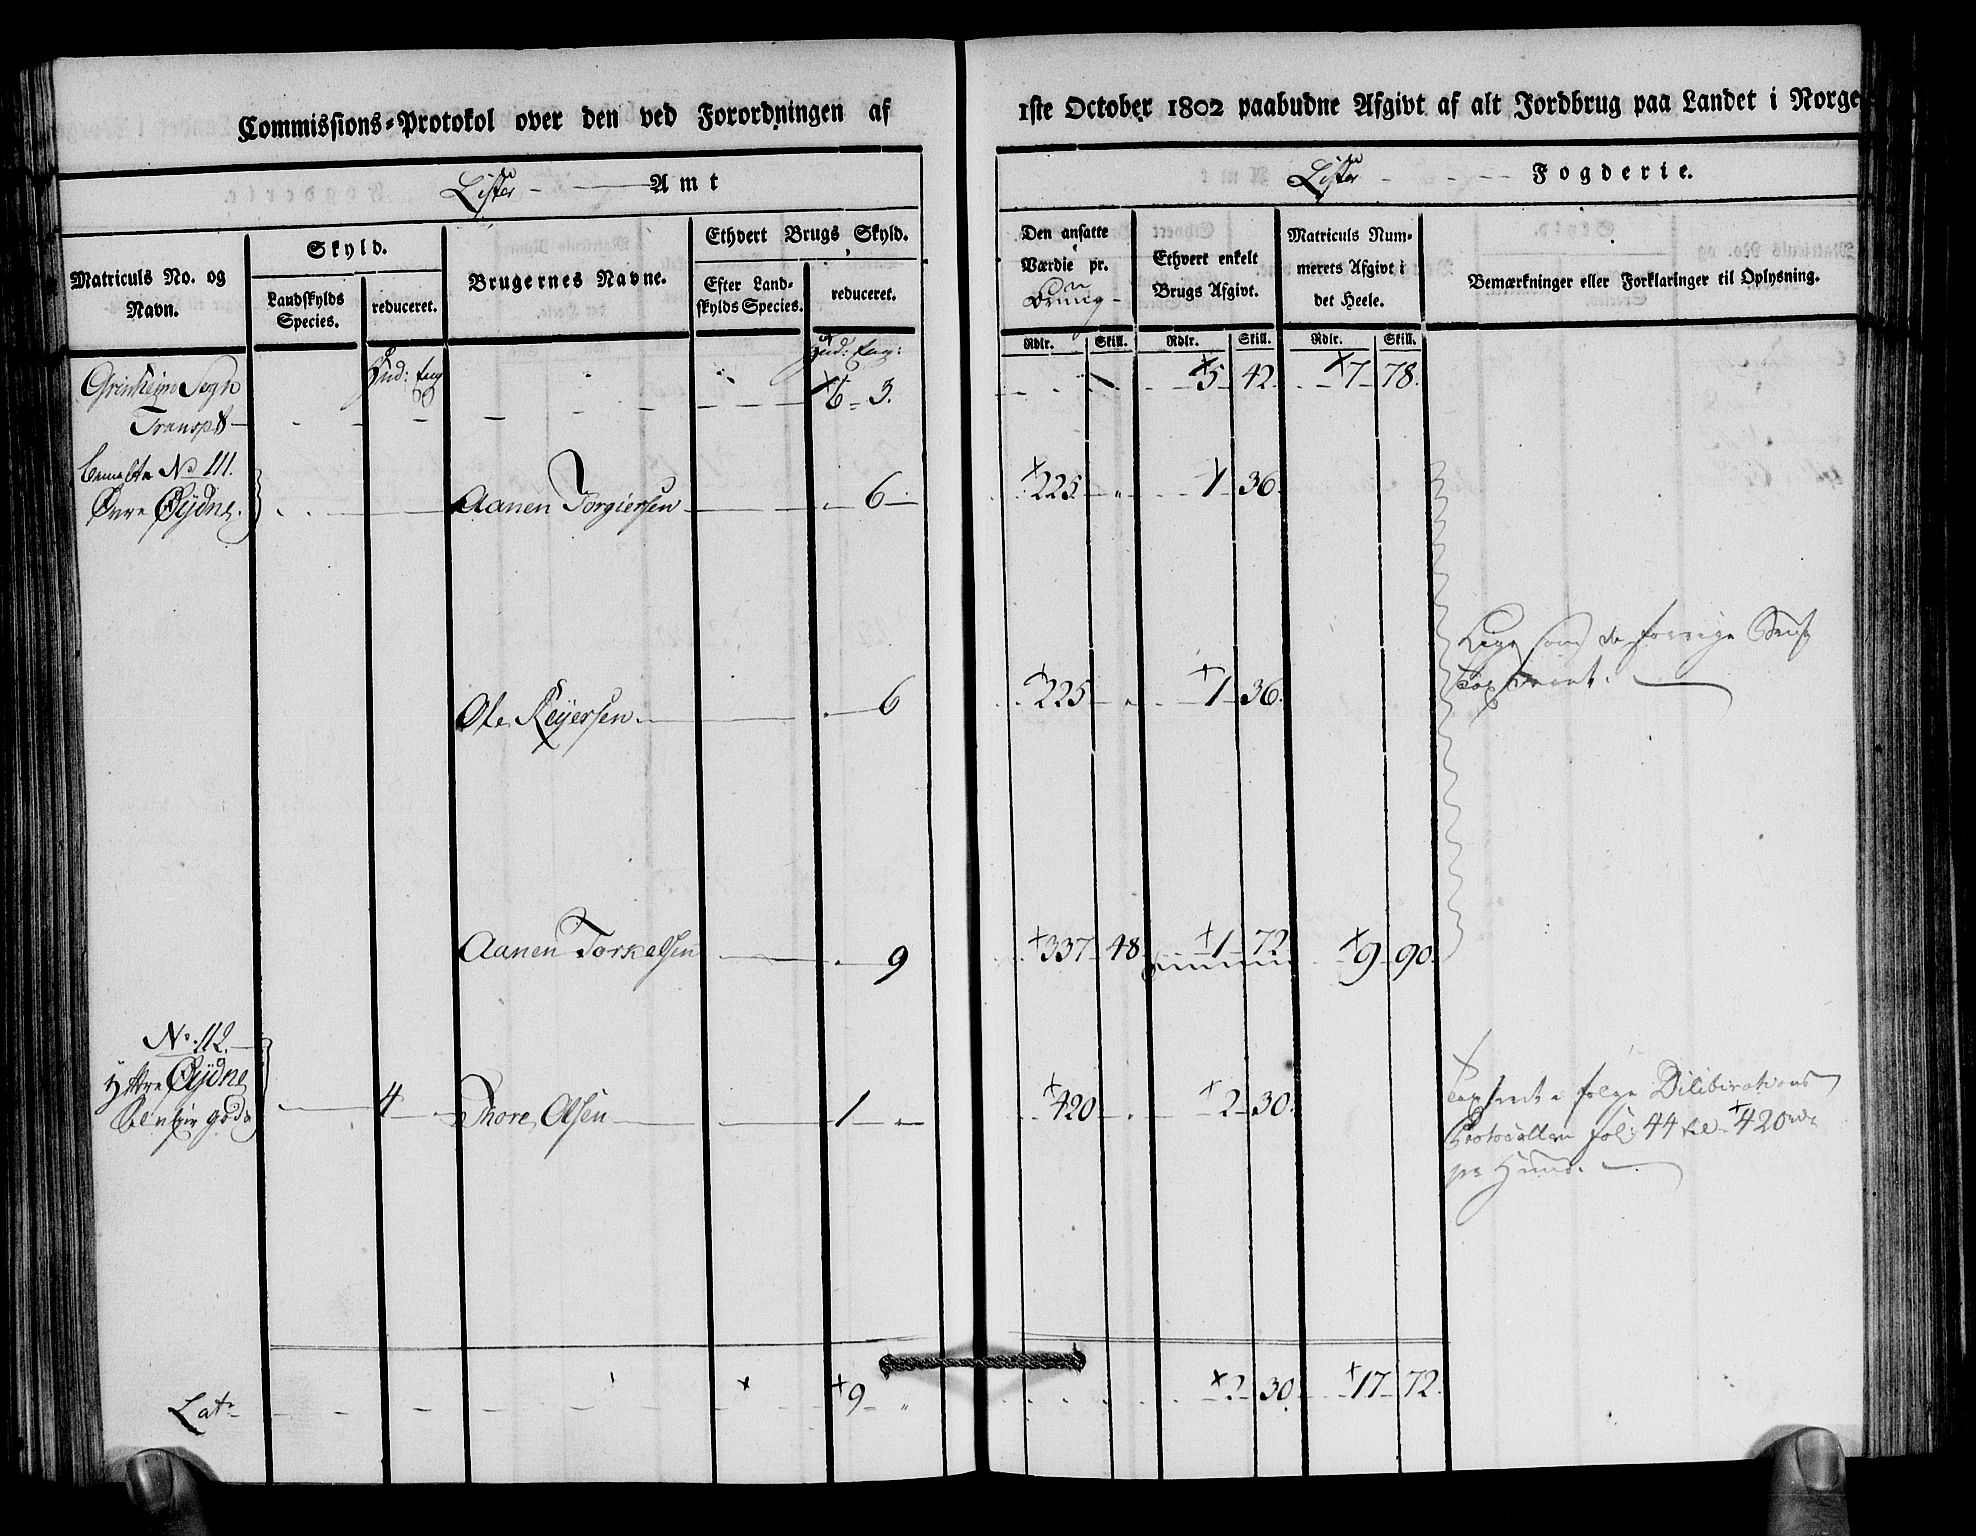 Commissions-Protokol over den ved Forordningen af 1ste October 1802 paabudne Afgivt af alt Jordbrug paa Landet i Norge
Lister Amt
Lister Fogderie.
Matriculs No. og Navn.
Skyld.
Landskylds Species.
reduceret.
Brugernes Navne.
Ethvert Brugs Skyld.
Efter Landskylds Species.
reduceret.
Den ansatte Værdie pr.
Ethvert enkelt Brugs Afgivt.
Matriculs Nummerets Afgivt i det Heele.
Bemærkninger eller Forklaringer til Oplysning.
Rdlr. Skill. Rdlr. Skill. Rdlr. Skill.
Hud: Eng: Hud: Eng:
Grinheim Sogn
Transpt 6 3. 5 42. 7 78.
No 111.
Øvre Øijdne. Aanen Torgiersen 6 225 " 1 36.
Lige som de forrige
Ole Reijersen 6 225 1 36.
Aanen Torkelsen 9 337 48 1 72 9 90.
No. 112.
Yttre Øijdne
Selveier gods 4 Thore Olsen 1 420 2 30.
Taxeret i følge Dilibirations
Protocollen fol: 44 til 420 rd
pr Huud.
Lat 9 " 2 30. 17 72.